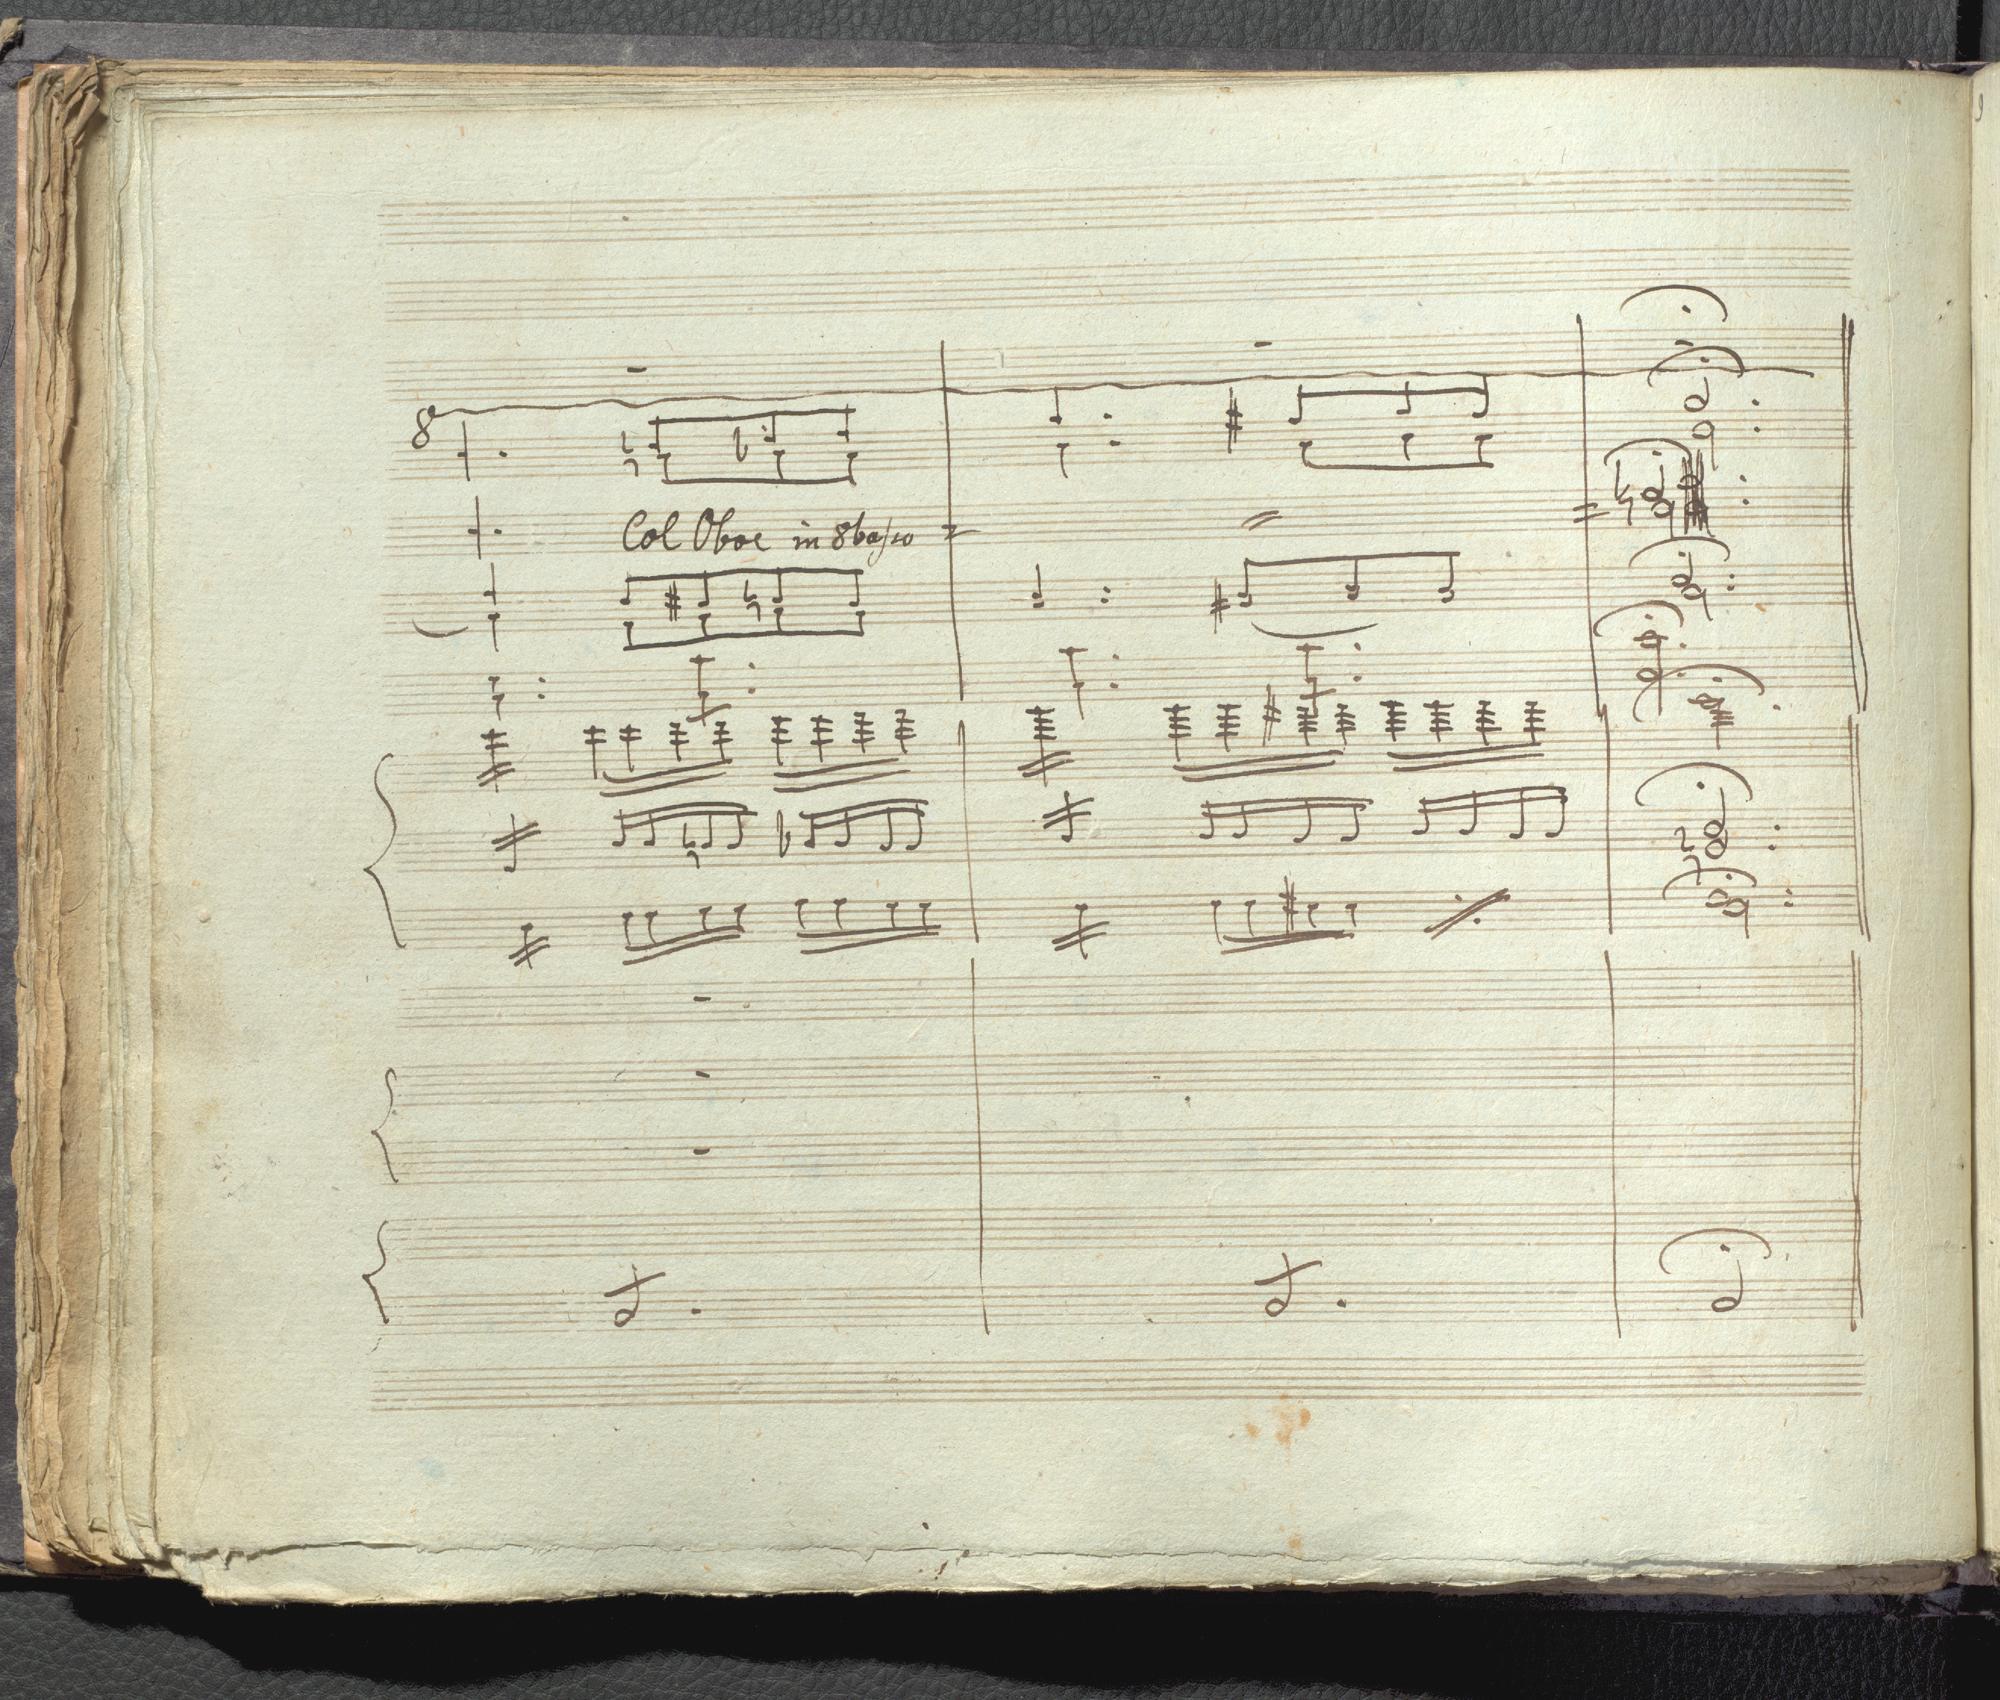 8
Col Oboe in 8basso